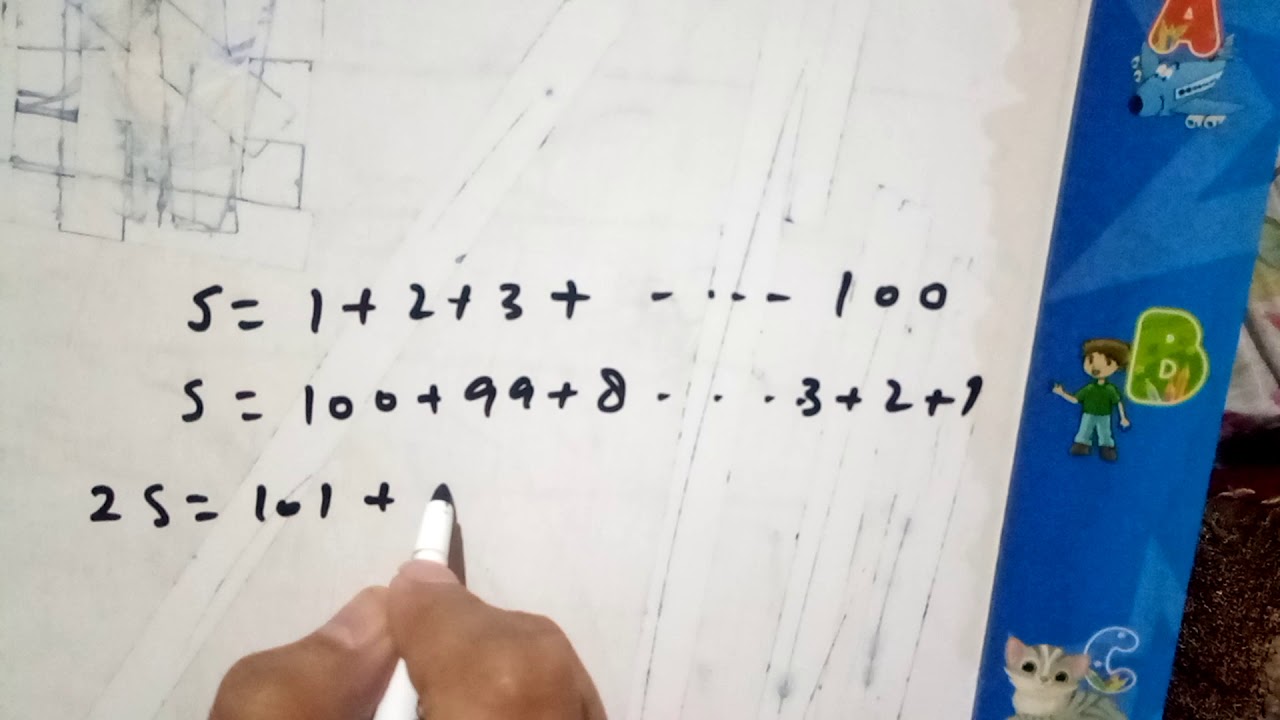 S = 1 + 2 + 3 + - · · - 100
S = 100 + 99 + 8 · · · 3 + 2 + 1
2 S = 101 +
A
B
C